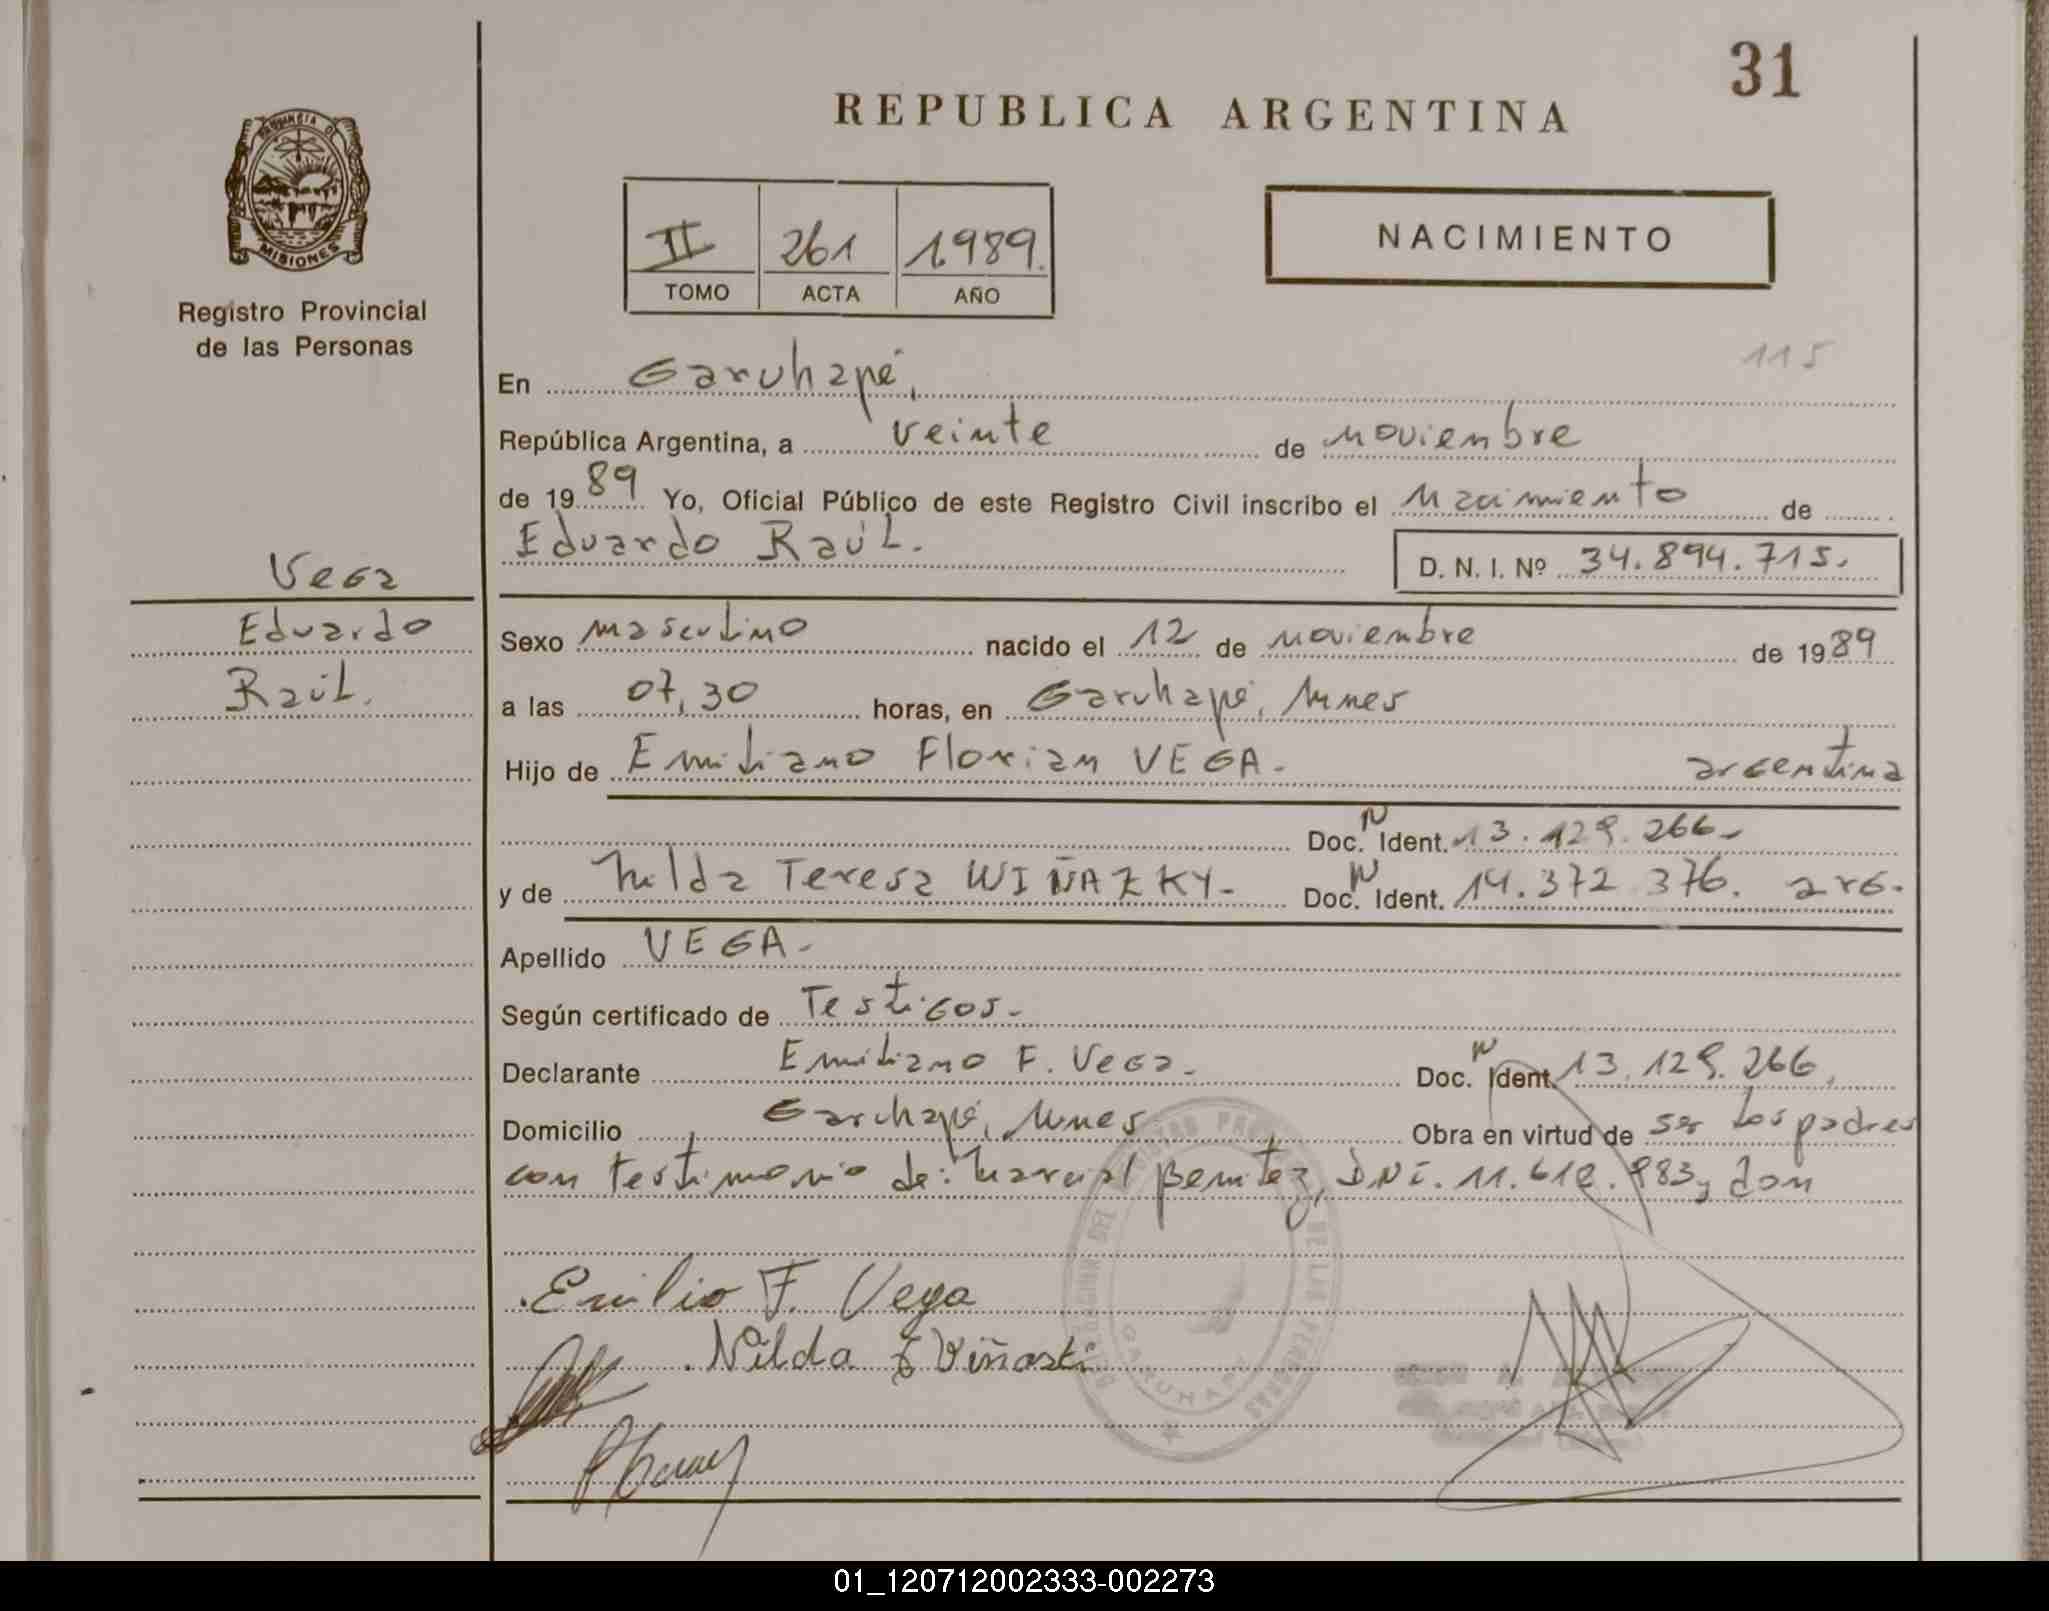 31
REPUBLICA ARGENTINA
PROVINCIA DE
MISIONES
Registro Provincial
de las Personas
II 261 1989.
TOMO ACTA AÑO
NACIMIENTO
115
En Garuhapé,
República Argentina, a veinte de noviembre
de 1989 Yo, Oficial Público de este Registro Civil inscribo el nacimiento de
Eduardo Raúl.
D. N. I. Nº 34.894.715.
Vega
Eduardo
Raúl.
Sexo masculino nacido el 12 de noviembre de 1989
a las 07,30 horas, en Garuhapé, Mnes
Hijo de Emiliano Florian VEGA. argentina
Doc. N Ident. 13.129.266.
y de Nilda Teresa WIÑAZKY. Doc. N Ident. 14.372 376. arg.
Apellido VEGA.
Según certificado de Testigos.
Declarante Emiliano F. Vega. Doc. N Ident. 13.129.266,
Domicilio Garuhapé, Mnes Obra en virtud de ser los padres
con testimonio de: Marcial Benitez, DNI. 11.618.983, don
Emilio F. Vega
Nilda T Viñaski
GARUHAPE
01_120712002333-002273